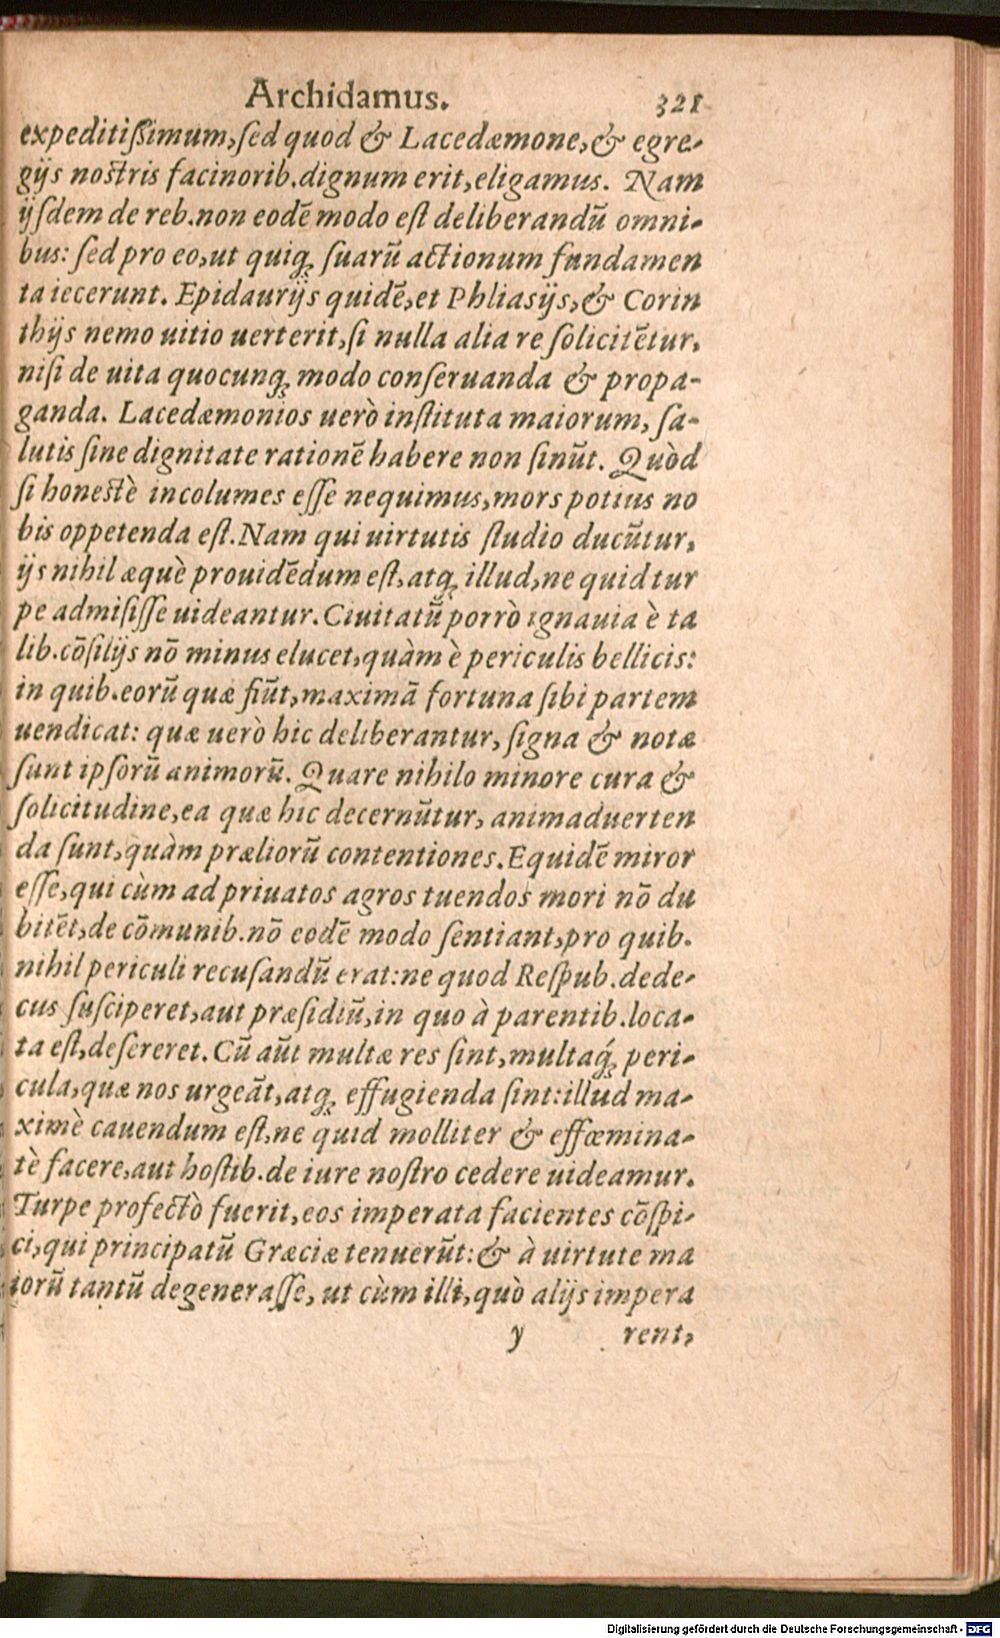 Archidamus. 321
expeditißimum, sed quod & Lacedæmone, & egre-
gijs nostris facinorib. dignum erit, eligamus. Nam
ijsdem de reb. non eodē modo est deliberandū omni-
bus: sed pro eo, ut quiq; suarū actionum fundamen
ta iecerunt. Epidaurijs quidē, et Phliasijs, & Corin
thijs nemo uitio uerterit, si nulla alia re solicitētur,
nisi de uita quocunq; modo conseruanda & propa-
ganda. Lacedæmonios uerò instituta maiorum, sa-
lutis sine dignitate rationē habere non sinūt. Quòd
si honestè incolumes esse nequimus, mors potius no
bis oppetenda est. Nam qui uirtutis studio ducūtur,
ijs nihil æquè prouidēdum est, atq; illud, ne quid tur
pe admisisse uideantur. Ciuitatū porrò ignauia è ta
lib. cōsilijs nō minus elucet, quàm è periculis bellicis:
in quib. eorū quæ fiūt, maximā fortuna sibi partem
uendicat: quæ uerò hic deliberantur, signa & notæ
sunt ipsorū animorū. Quare nihilo minore cura &
solicitudine, ea quæ hic decernūtur, animaduerten
da sunt, quàm præliorū contentiones. Equidē miror
esse, qui cùm ad priuatos agros tuendos mori nō du
bitēt, de cōmunib. nō eodē modo sentiant, pro quib.
nihil periculi recusandū erat: ne quod Respub. dede-
cus susciperet, aut præsidiū, in quo à parentib. loca-
ta est, desereret. Cū aūt multæ res sint, multaq́; peri-
cula, quæ nos urgeāt, atq; effugienda sint: illud ma-
ximè cauendum est, ne quid molliter & effœmina-
tè facere, aut hostib. de iure nostro cedere uideamur.
Turpe profectò fuerit, eos imperata facientes cōspi-
ci, qui principatū Græciæ tenuerūt: & à uirtute ma
iorū tantū degenerasse, ut cùm illi, quò alijs impera
y rent,
Digitalisierung gefördert durch die Deutsche Forschungsgemeinschaft - DFG